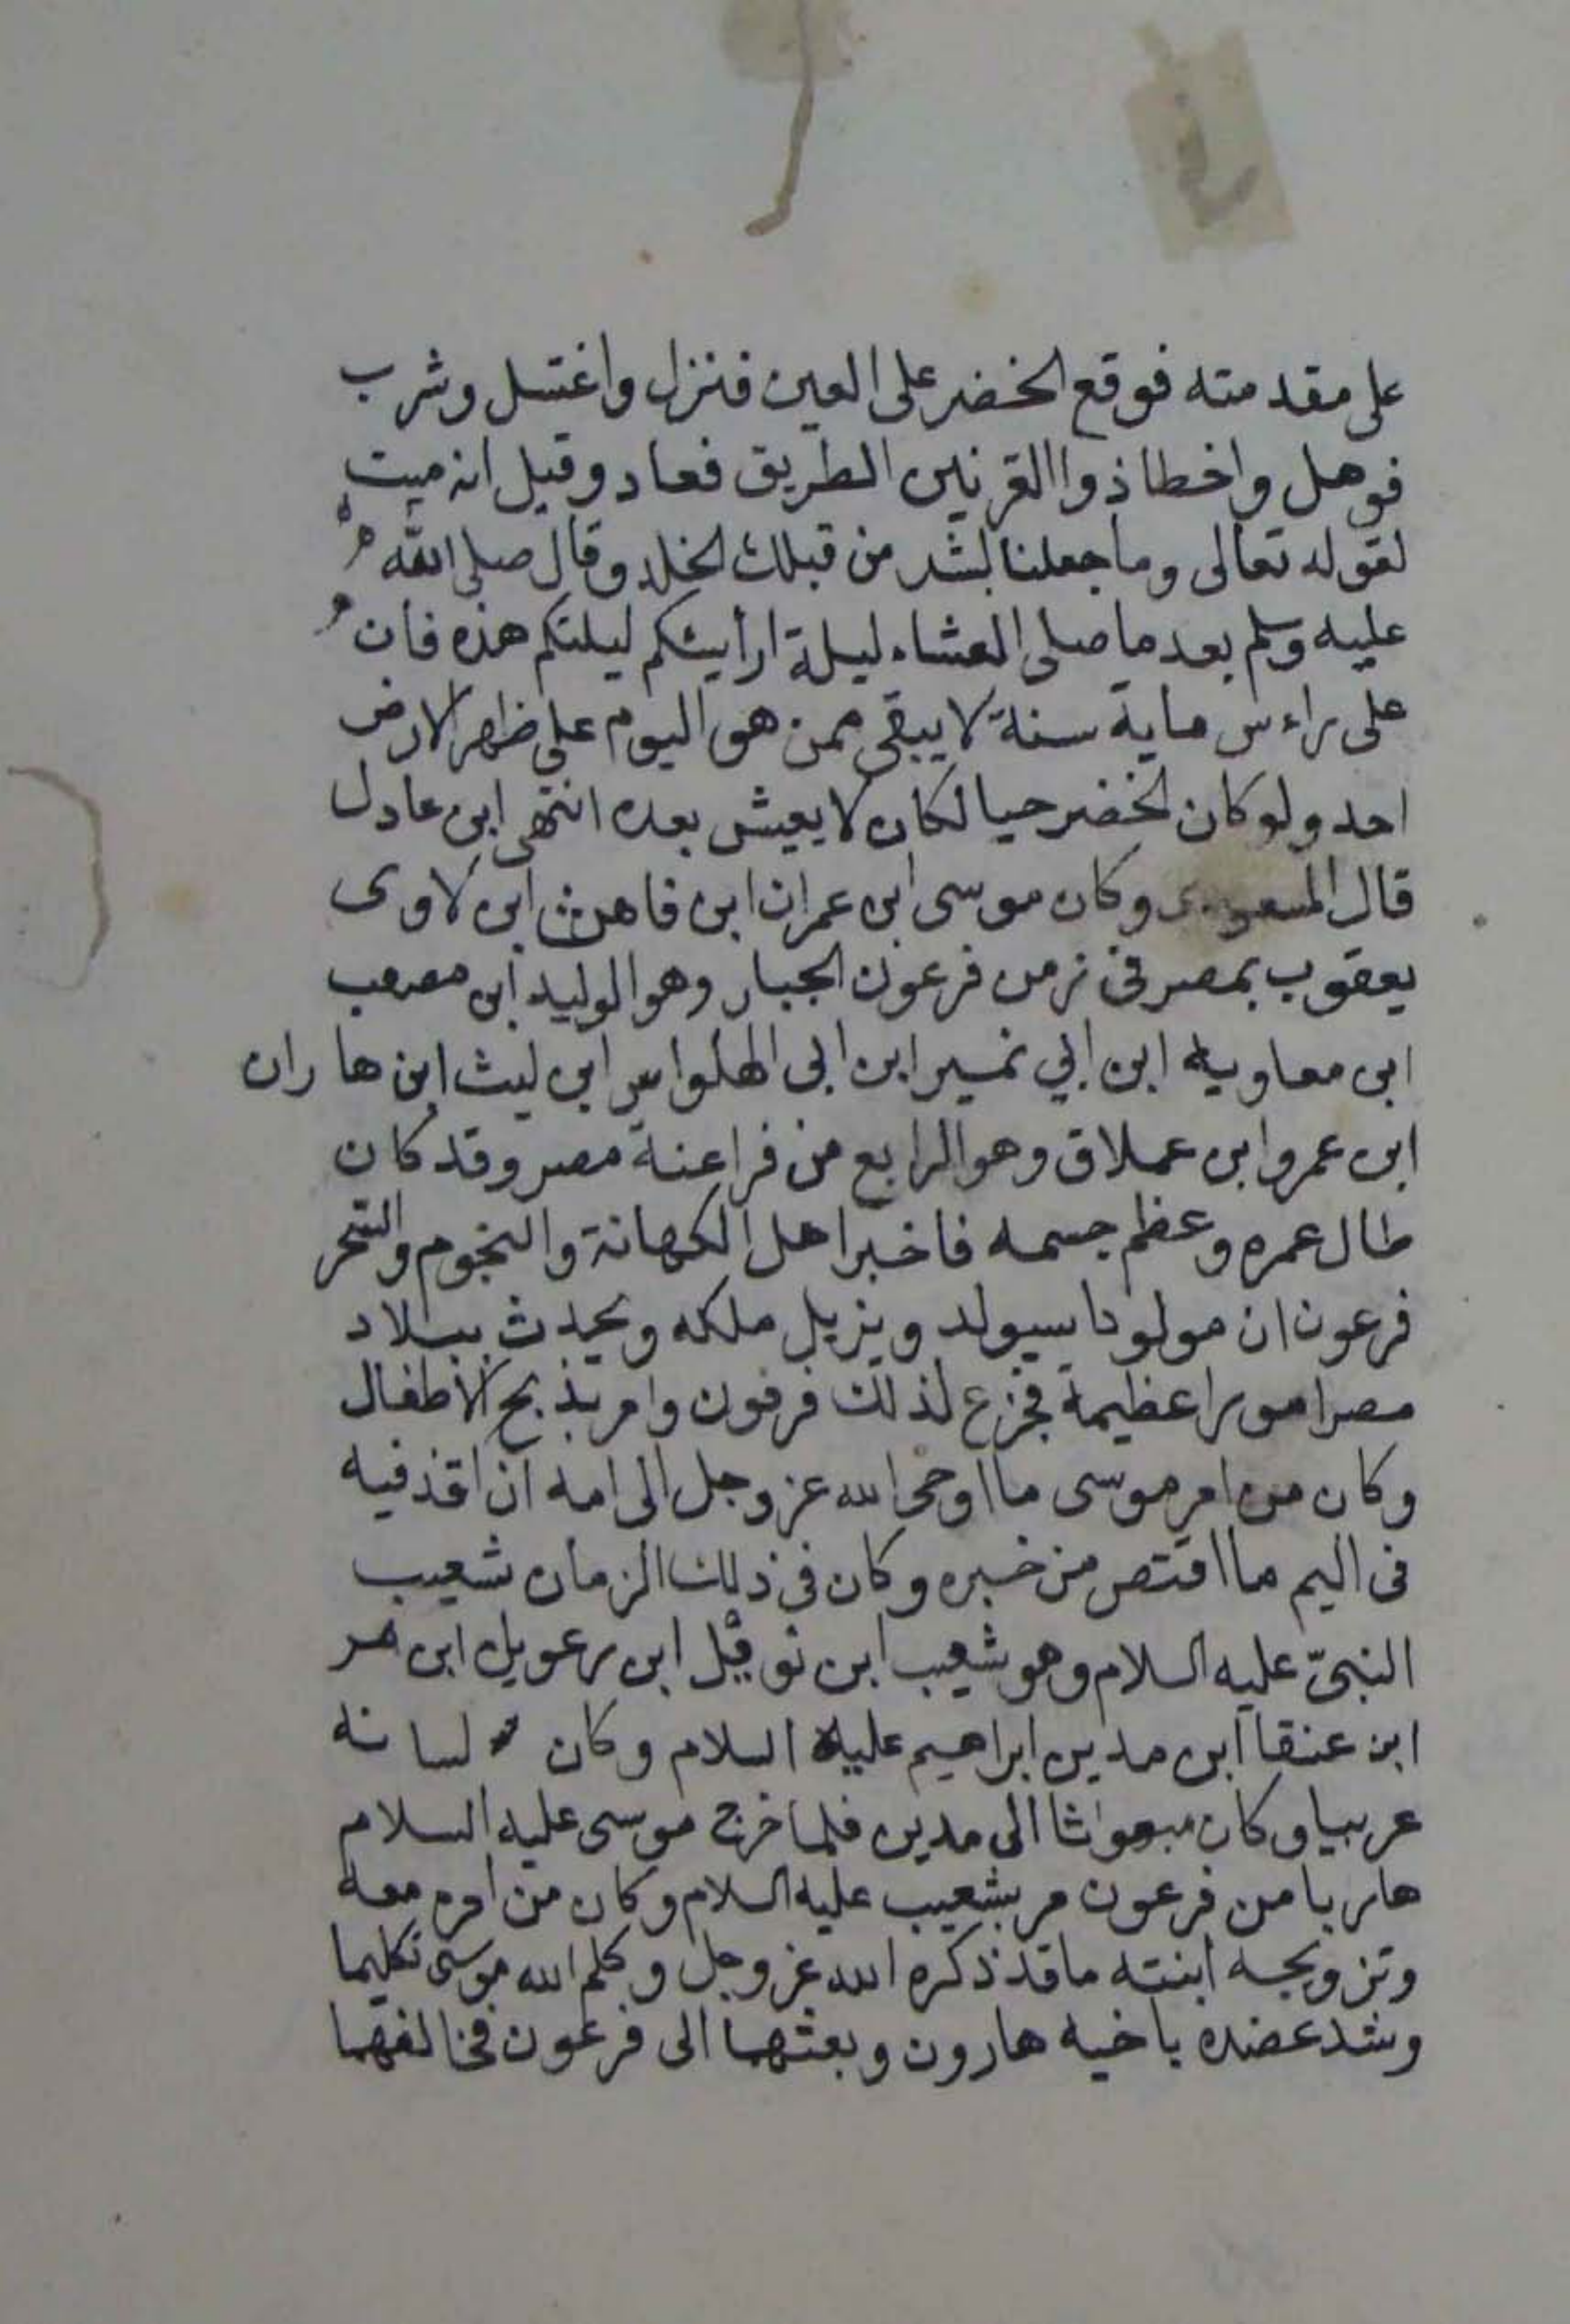 على مقدمته فوقع الخضر على العين فنزل واغتسل وشرب
فوهل واخطا ذوا القرنين الطريق فعاد وقيل انه ميت
لقوله تعالى وما جعلنا لبشر من قبلك الخلد وقال صلى الله
عليه وسلم بعد ما صلى العشاء ليلة ارأيتكم ليلتكم هذه فان
على راءس ماية سنة لا يبقى ممن هو اليوم على ظهر الارض
احد ولو كان الخضر حيا لكان لا يعيش بعده انتهى ابن عادل
قال المسعودى وكان موسى ابن عمران ابن قاهث ابن لاوى
يعقوب بمصر فى زمن فرعون الجبار وهو الوليد ابن مصعب
ابن معاوية ابن ابي نمير ابن ابى الهلواس ابن ليث ابن هاران
ابن عمرو ابن عملاق وهو الرابع من فراعنة مصر وقد كان
طال عمره وعظم جسمه فاخبر اهل الكهانة والنجوم والسحر
فرعون ان مولودا سيولد ويزيل ملكه ويحدث ببلاد
مصر امورا عظيمة فجزع لذلك فرفون وامر بذبح الاطفال
وكان من امر موسى ما اوحى الله عز وجل الى امه ان اقذفيه
فى اليم ما اقتص من خبره وكان فى ذلك الزمان شعيب
النبىّ عليه السلام وهو شعيب ابن نوفيل ابن رعويل ابن مر
ابن عنقا ابن مدين ابراهيم عليه السلام وكان لسانه
عربيا وكان مبعواثا الى مدين فلما خرج موسى عليه السلام
هاربا من فرعون مر بشعيب عليه السلام وكان من امره معه
وتزويجه ابنته ما قد ذكره الله عز وجل وكلم الله موسى تكليما
وشد عضده باخيه هارون وبعثهما الى فرعون فخالفهما